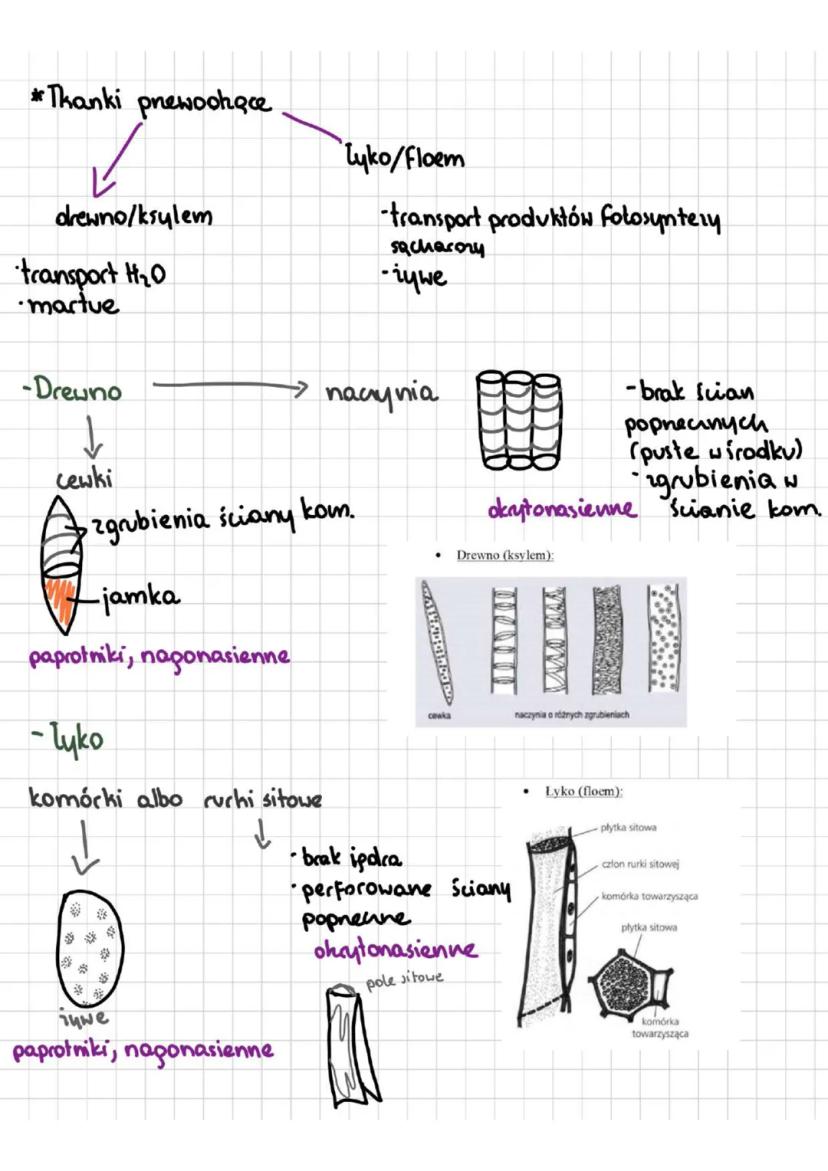 * Tkanki przewodzące
łyko/floem
drewno/ksylem
-transport produktów fotosyntezy
sacharozy
-żywe
·transport H₂O
·martwe
-Drewno
naczynia
-brak ścian
poprzecznych
(puste w środku)
·zgrubienia w
ścianie kom.
okrytonasienne
cewki
zgrubienia ściany kom.
jamka
paprotniki, nagonasienne
• Drewno (ksylem):
cewka
naczynia o różnych zgrubieniach
-łyko
komórki albo rurki sitowe
·brak jądra
·perforowane ściany
poprzeczne
okrytonasienne
pole sitowe
żywe
paprotniki, nagonasienne
• Łyko (floem):
płytka sitowa
człon rurki sitowej
komórka towarzysząca
płytka sitowa
komórka
towarzysząca